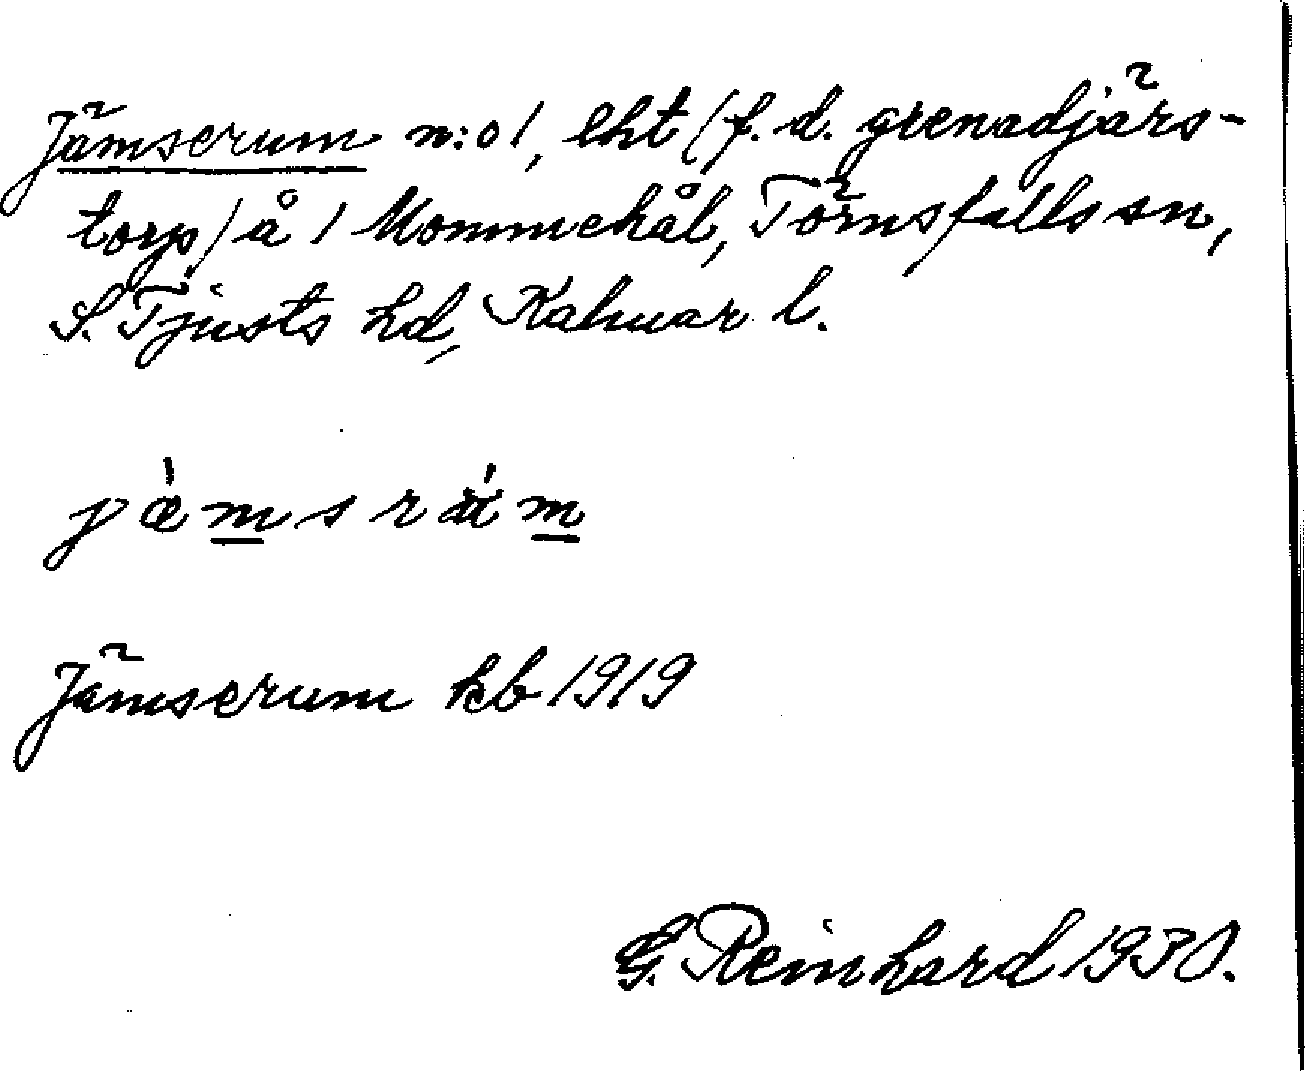 Jämserum n:o 1, lht (f. d. grenadjärs-
torp) å 1 Mommehål, Törnsfalls sn,
S. Tjusts hd, Kalmar l.
jämsräm
Jämserum kb 1919
G. Reinhard 1930.